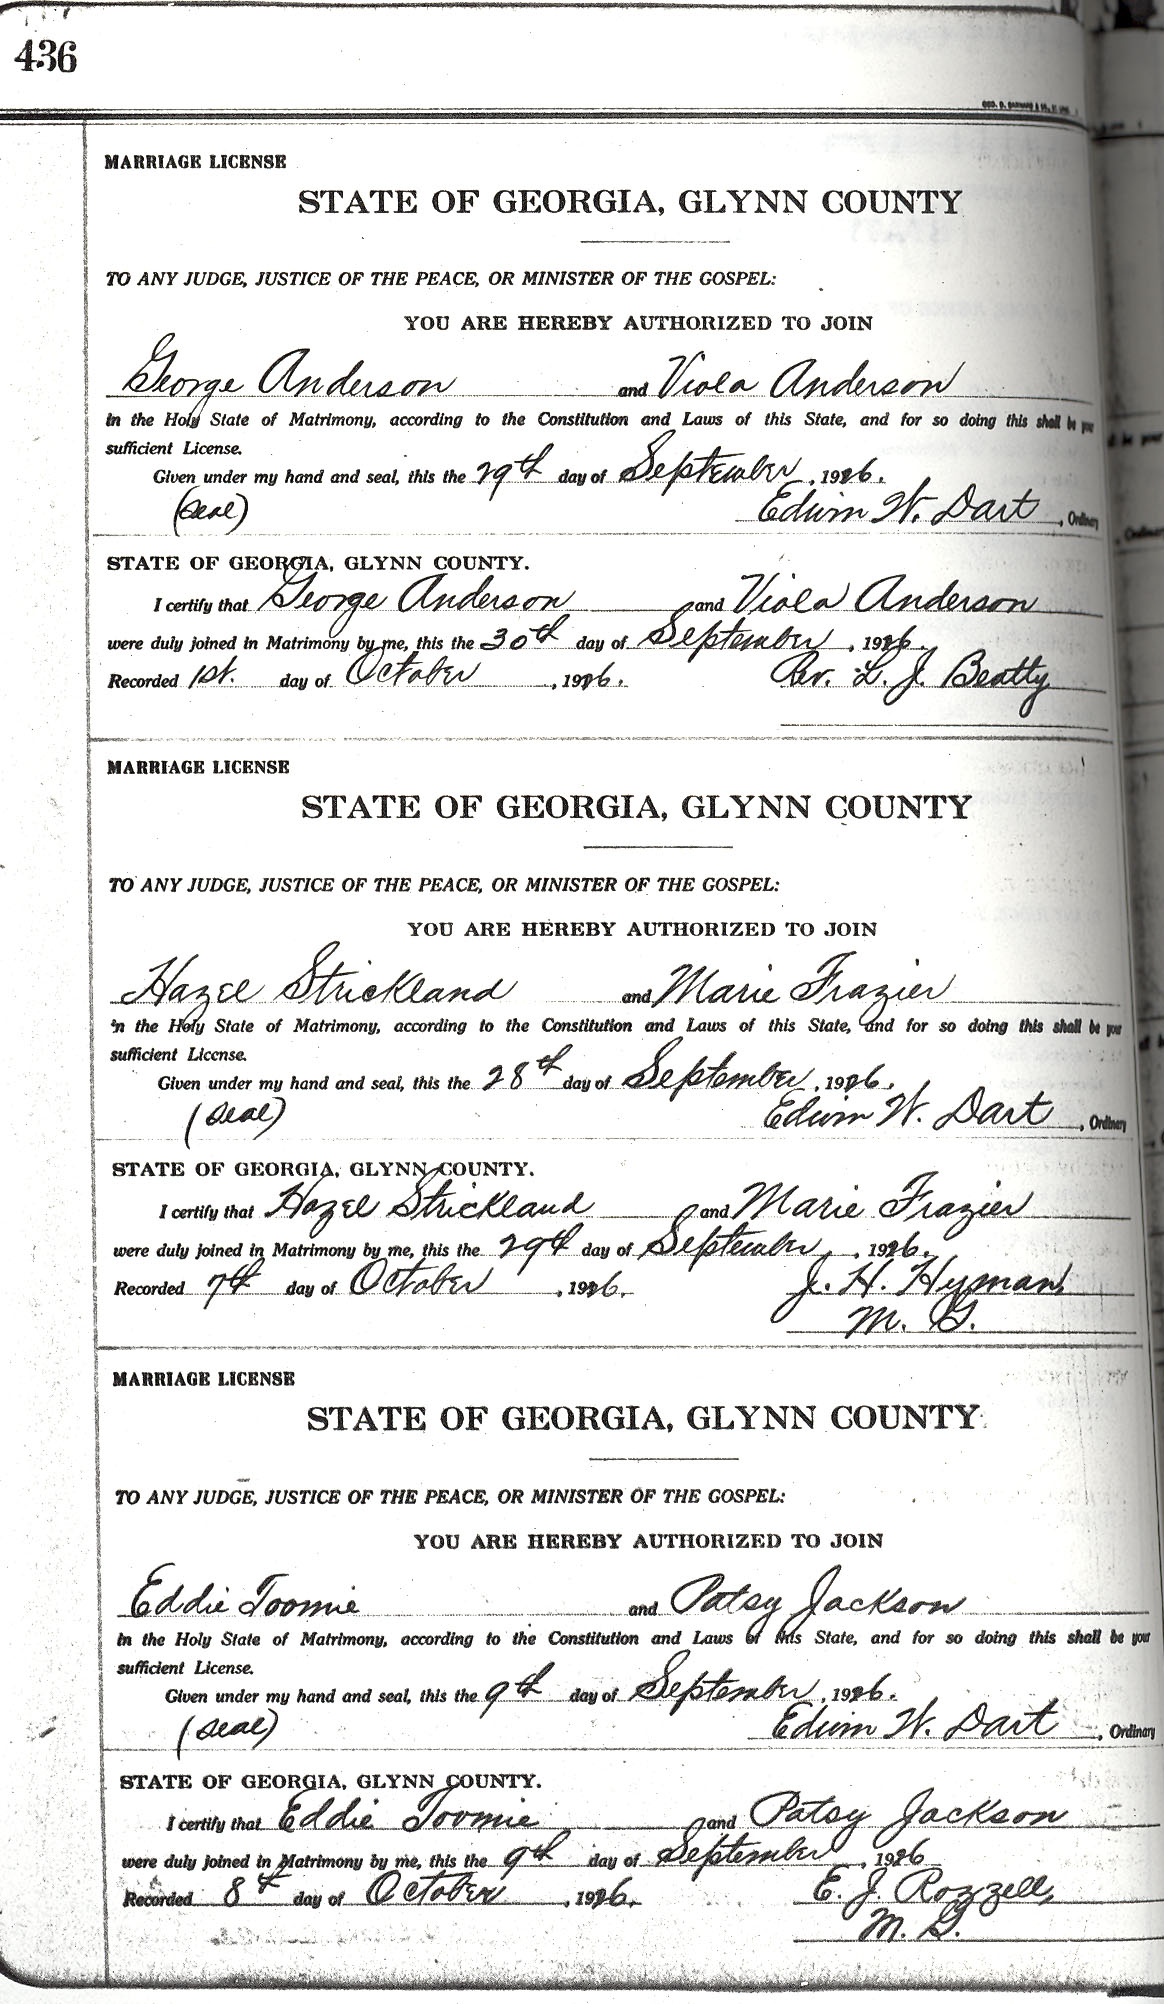 436
MARRIAGE LICENSE
STATE OF GEORGIA, GLYNN COUNTY
TO ANY JUDGE, JUSTICE OF THE PEACE, OR MINISTER OF THE GOSPEL:
YOU ARE HEREBY AUTHORIZED TO JOIN
George Anderson and Viola Anderson
in the Holy State of Matrimony, according to the Constitution and Laws of this State, and for so doing this shall be your
sufficient License.
Given under my hand and seal, this the 29th day of September, 1926.
(Seal) Edwin W. Dart, Ordinary
STATE OF GEORGIA, GLYNN COUNTY.
I certify that George Anderson and Viola Anderson
were duly joined in Matrimony by me, this the 30th day of September, 1926.
Recorded 1st. day of October, 1926. Rev. L. J. Beatty
MARRIAGE LICENSE
STATE OF GEORGIA, GLYNN COUNTY
TO ANY JUDGE, JUSTICE OF THE PEACE, OR MINISTER OF THE GOSPEL:
YOU ARE HEREBY AUTHORIZED TO JOIN
Hazel Strickland and Marie Frazier
in the Holy State of Matrimony, according to the Constitution and Laws of this State, and for so doing this shall be your
sufficient License.
Given under my hand and seal, this the 28th day of September, 1926.
(Seal) Edwin W. Dart, Ordinary
STATE OF GEORGIA, GLYNN COUNTY.
I certify that Hazel Strickland and Marie Frazier
were duly joined in Matrimony by me, this the 29th day of September, 1926.
Recorded 7th day of October, 1926. J. H. Hyman,
M. G.
MARRIAGE LICENSE
STATE OF GEORGIA, GLYNN COUNTY
TO ANY JUDGE, JUSTICE OF THE PEACE, OR MINISTER OF THE GOSPEL:
YOU ARE HEREBY AUTHORIZED TO JOIN
Eddie Toomie and Patsy Jackson
in the Holy State of Matrimony, according to the Constitution and Laws of this State, and for so doing this shall be your
sufficient License.
Given under my hand and seal, this the 9th day of September, 1926.
(Seal) Edwin W. Dart, Ordinary
STATE OF GEORGIA, GLYNN COUNTY.
I certify that Eddie Toomie and Patsy Jackson
were duly joined in Matrimony by me, this the 9th day of September, 1926
Recorded 8th day of October, 1926. E. J. Rozzell,
M. G.